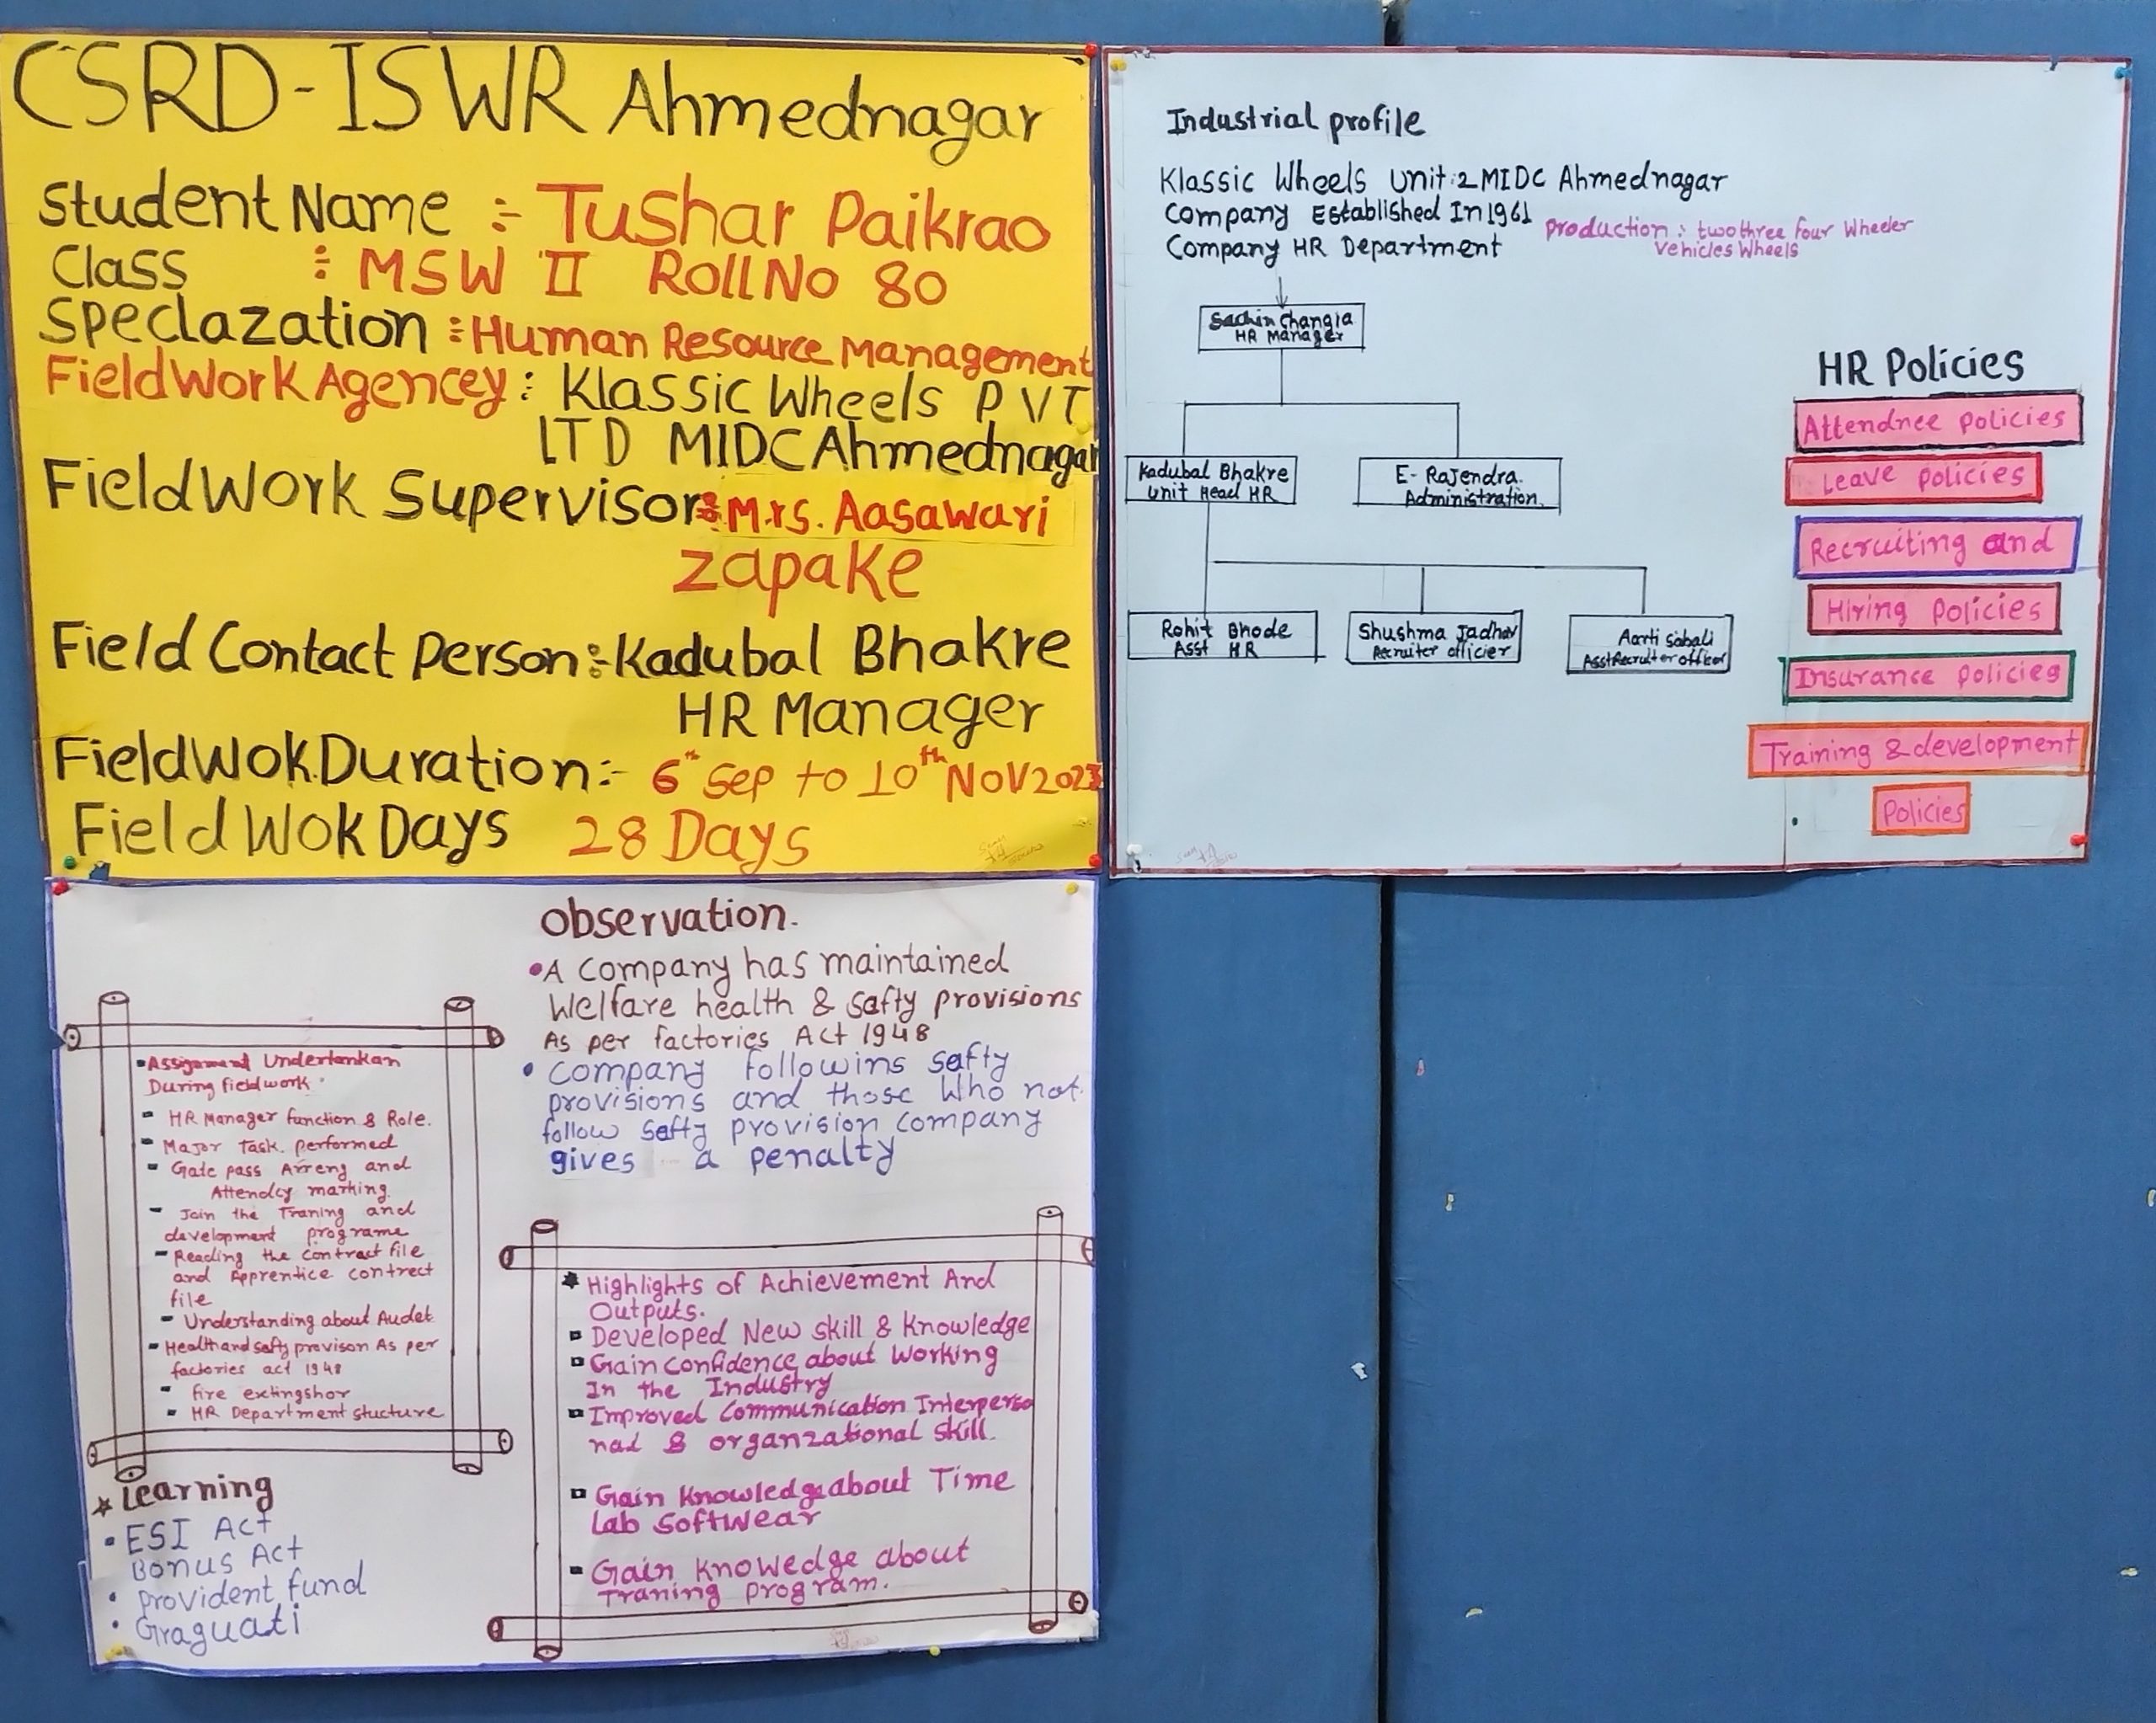 CSRD-ISWR Ahmednagar
Student Name :- Tushar Paikrao
Class : MSW II Roll No 80
Speclazation : Human Resource Management
Field Work Agencey : Klassic Wheels PVT
LTD MIDC Ahmednagar
Field Work Supervisor : Mrs. Aasawari
zapake
Field Contact Person :- Kadubal Bhakre
HR Manager
Field Wok Duration :- 6th Sep to 10th Nov 2023
Field Wok Days 28 Days
Industrial profile
Klassic Wheels Unit : 2 MIDC Ahmednagar
Company Established In 1961
Production : two three four Wheeler
Vehicles Wheels
Company HR Department
Sachin Changia
HR Manager
Kadubal Bhakre
Unit Head HR
E- Rajendra.
Administration.
Rohit Bhode
Asst HR
Shushma Jadhav
Recruiter officier
Aarti Sabali
Asst Recruiter officer
HR Policies
Attendnce policies
Leave policies
Recruiting and
Hiring policies
Insurance policies
Training & development
Policies
Observation.
• A Company has maintained
Welfare health & Safty provisions
As per factories Act 1948
• Company followins Safty
provisions and those Who not
follow Safty provision company
gives a penalty
• Assigement Undertankan
During field work
- HR Manager function & Role.
- Major Task. performed
- Gate pass Arreng and
Attendcy marking.
- Join the Traning and
development programe
- Reading the contract file
and Apprentice contrect
file
- Understanding about Audet
- Health and safty provison As per
factories act 1948
- fire extingshor
- HR Department stucture
* Learning
• ESI Act
Bonus Act
• Provident fund
• Graguati
* Highlights of Achievement And
Outputs.
Developed New skill & Knowledge
Gain confidence about Working
In the Industry
Improved Communication Interperso
nal & organzational Skill.
Gain Knowledge about Time
Lab Softwear
Gain knowedge about
Traning program.